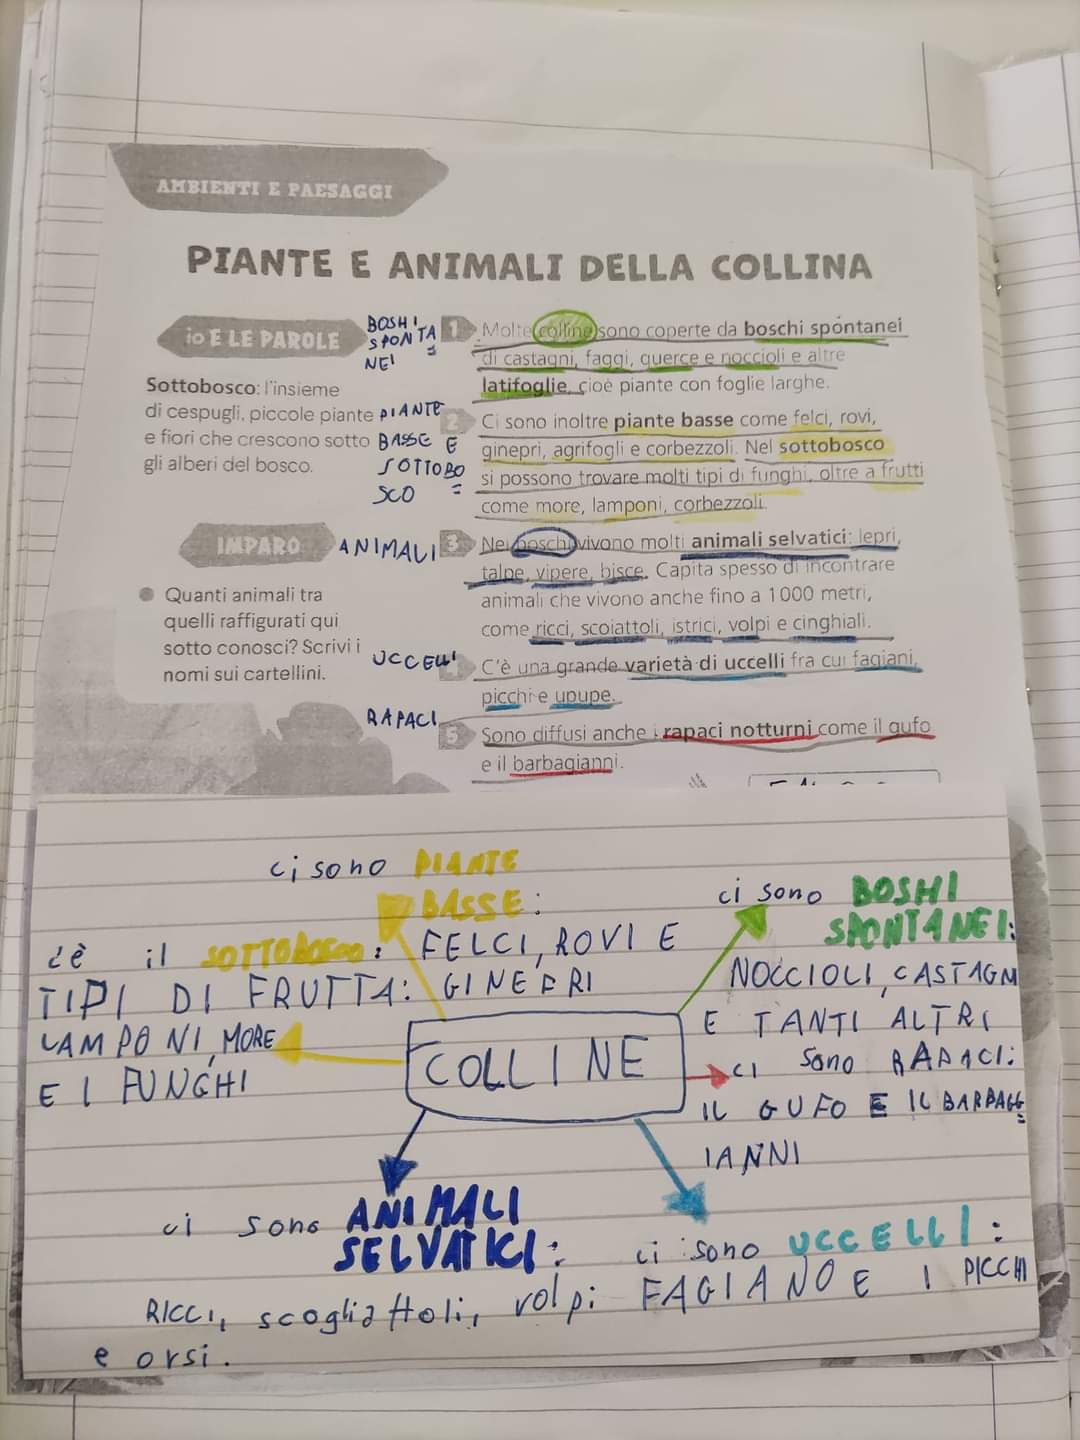 AMBIENTI E PAESAGGI
PIANTE E ANIMALI DELLA COLLINA
io E LE PAROLE
Sottobosco: l'insieme
di cespugli, piccole piante
e fiori che crescono sotto
gli alberi del bosco.
IMPARO
Quanti animali tra
quelli raffigurati qui
sotto conosci? Scrivi i
nomi sui cartellini.
BOSHI
SPONTA
NEI
PIANTE
BASSE E
SOTTOBO
SCO
ANIMALI
UCCELLI
RAPACI
1 Molte colline sono coperte da boschi spontanei
di castagni, faggi, querce e noccioli e altre
latifoglie, cioè piante con foglie larghe.
2 Ci sono inoltre piante basse come felci, rovi,
ginepri, agrifogli e corbezzoli. Nel sottobosco
si possono trovare molti tipi di funghi, oltre a frutti
come more, lamponi, corbezzoli.
3 Nei boschi vivono molti animali selvatici: lepri,
talpe, vipere, bisce. Capita spesso di incontrare
animali che vivono anche fino a 1000 metri,
come ricci, scoiattoli, istrici, volpi e cinghiali.
4 C'è una grande varietà di uccelli fra cui fagiani,
picchi e upupe.
5 Sono diffusi anche i rapaci notturni come il gufo
e il barbagianni.
ci sono PIANTE
BASSE:
FELCI, ROVI E
GINEPRI
c'è il SOTTOBOSCO:
TIPI DI FRUTTA:
LAMPONI, MORE
E I FUNGHI
ci sono BOSHI
SPONTANEI:
NOCCIOLI, CASTAGNI
E TANTI ALTRI
COLLINE
ci sono RAPACI:
IL GUFO E IL BARBAGG
IANNI
ci sono ANIMALI
SELVATICI:
RICCI, scogliattoli, volpi
e orsi.
ci sono UCCELLI:
FAGIANO E I PICCHI